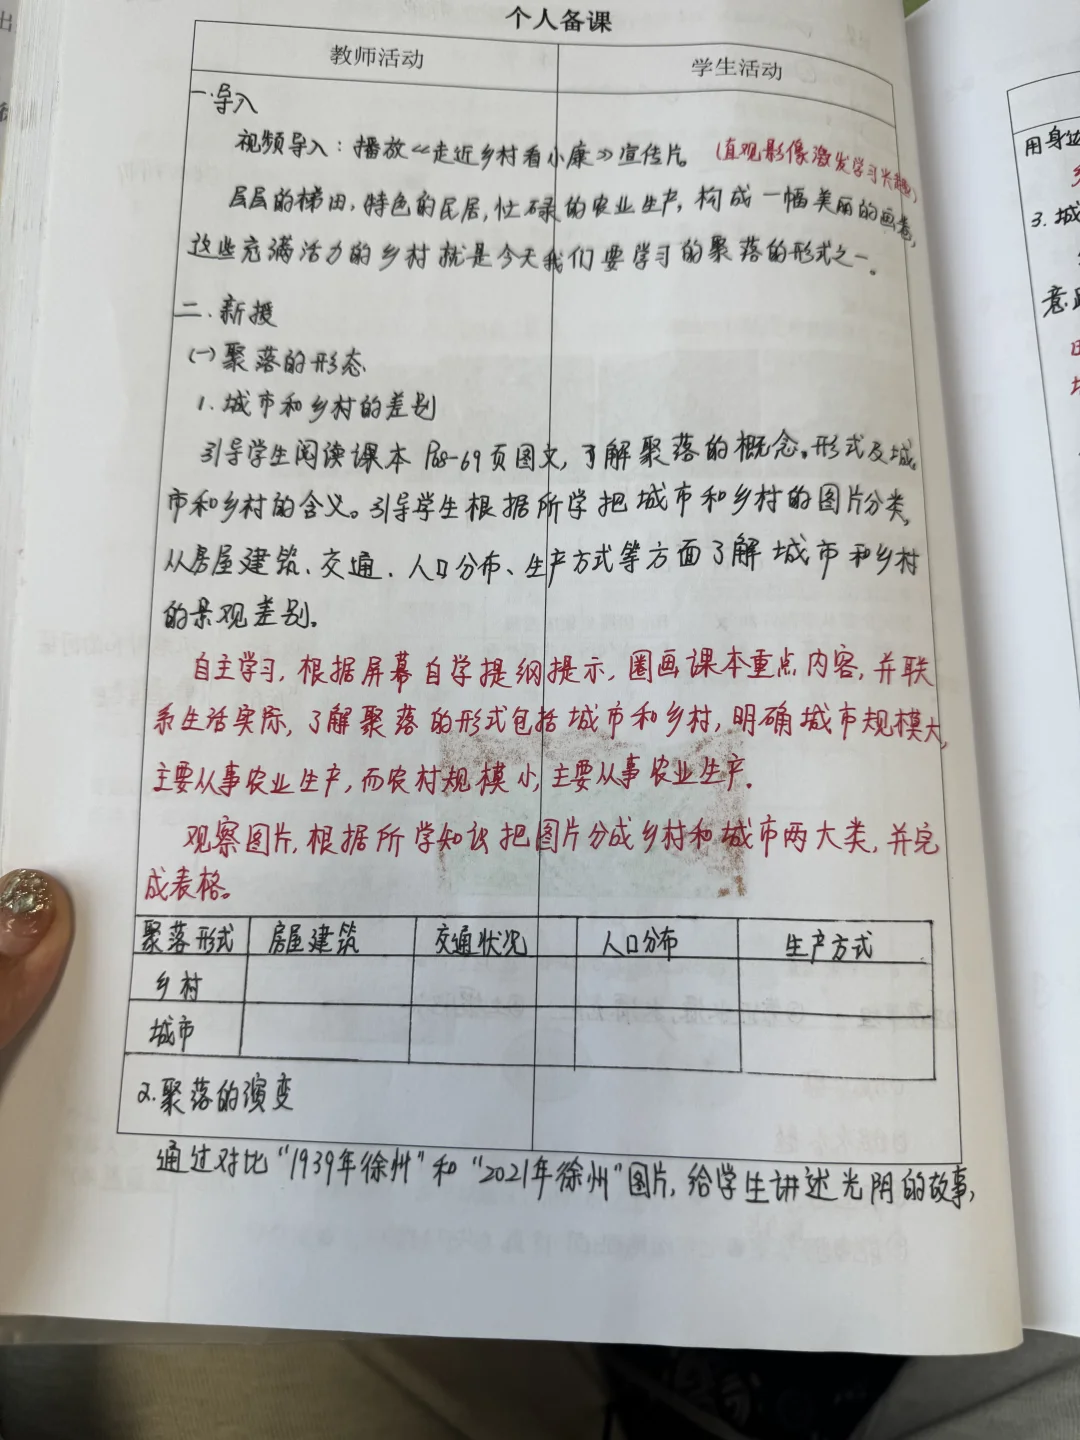 个人备课
教师活动 学生活动
一.导入
视频导入：播放《走近乡村看小康》宣传片。（直观影像激发学习兴趣）
层层的梯田，特色的民居，忙碌的农业生产，构成一幅美丽的画卷，
这些充满活力的乡村就是今天我们要学习的聚落的形式之一。
二.新授
(一)聚落的形态
1.城市和乡村的差别
引导学生阅读课本P68-69页图文，了解聚落的概念。形式及城
市和乡村的含义。引导学生根据所学把城市和乡村的图片分类，
从房屋建筑、交通、人口分布、生产方式等方面了解城市和乡村
的景观差别。
自主学习，根据屏幕自学提纲提示，圈画课本重点内容，并联
系生活实际，了解聚落的形式包括城市和乡村，明确城市规模大，
主要从事农业生产，而农村规模小，主要从事农业生产。
观察图片，根据所学知识把图片分成乡村和城市两大类，并完
成表格。
聚落形式 房屋建筑 交通状况 人口分布 生产方式
乡村
城市
2.聚落的演变
通过对比“1939年徐州”和“2021年徐州”图片，给学生讲述光阴的故事，
用身边
3.城
意